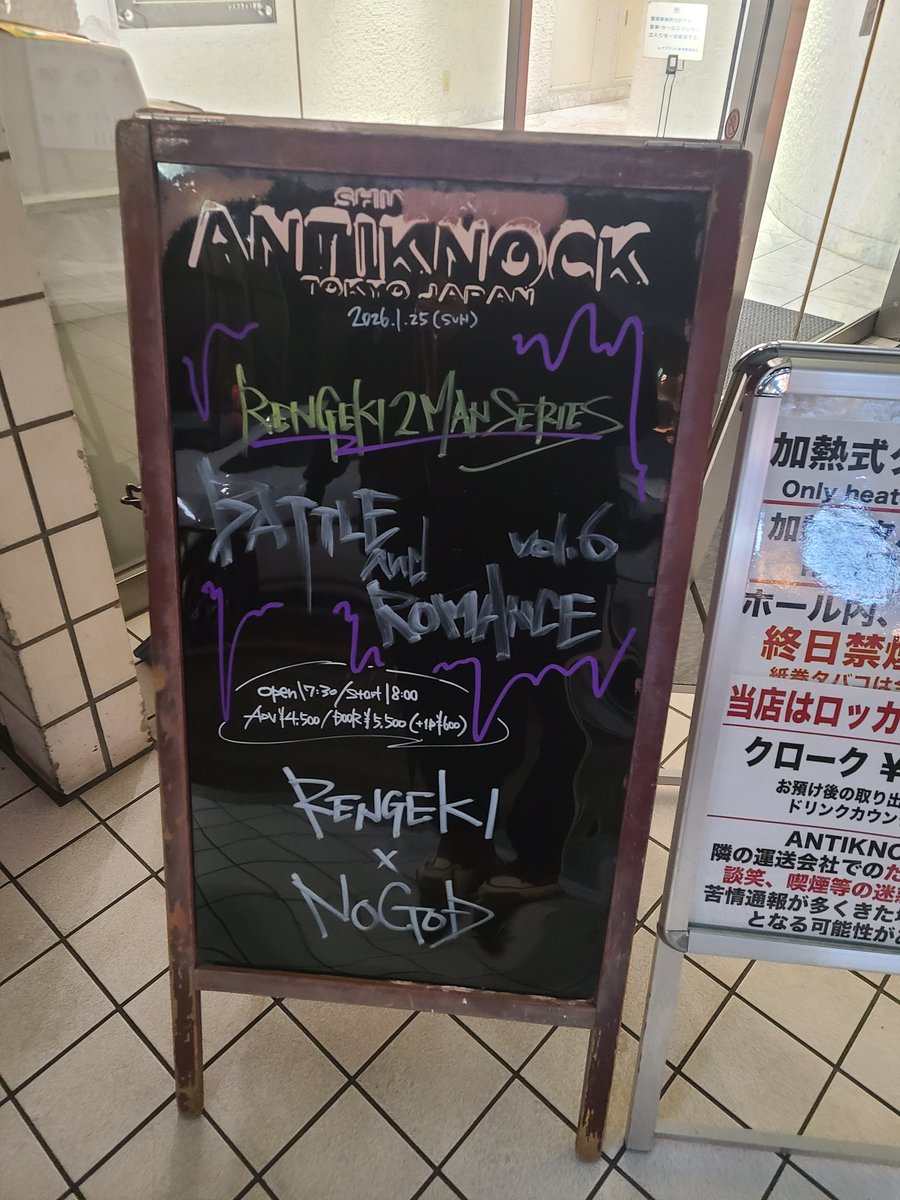 ANTIKNOCK
TOKYO JAPAN
2026.1.25(SUN)
RENGEKI 2MAN SERIES
BATTLE
and
vol.6
ROMANCE
open17:30/Start18:00
ADV¥4.500/DOOR¥5.500(+1D¥600)
RENGEKI
×
NoGoD
加熱式
Only heat
加熱
ホール内、
終日禁煙
紙巻タバコは
当店はロッカ
クローク ¥
お預け後の取り出
ドリンクカウン
ANTIKNO
隣の運送会社での
談笑、喫煙等の迷
苦情通報が多くきた
となる可能性が